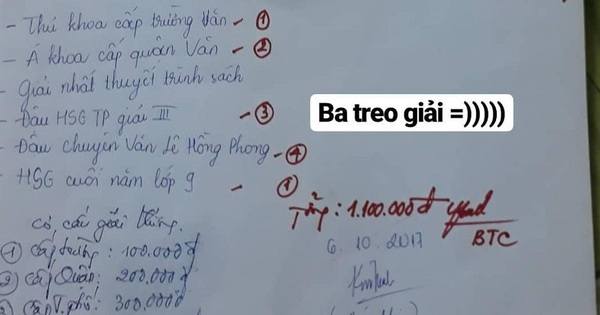 - Thủ khoa cấp trường Văn - ①
- Á khoa cấp quận Văn - ②
- Giải nhất thuyết trình sách
- Đậu HSG TP giải III - ③
- Đậu chuyên Văn Lê Hồng Phong - ④
- HSG cuối năm lớp 9 - ①
Ba treo giải =)))))
Tổng: 1.100.000đ
BTC
6.10.2017
Cơ cấu giải thưởng.
① Cấp trường: 100.000đ
② Cấp Quận: 200.000đ
③ Cấp T.phố: 300.000đ